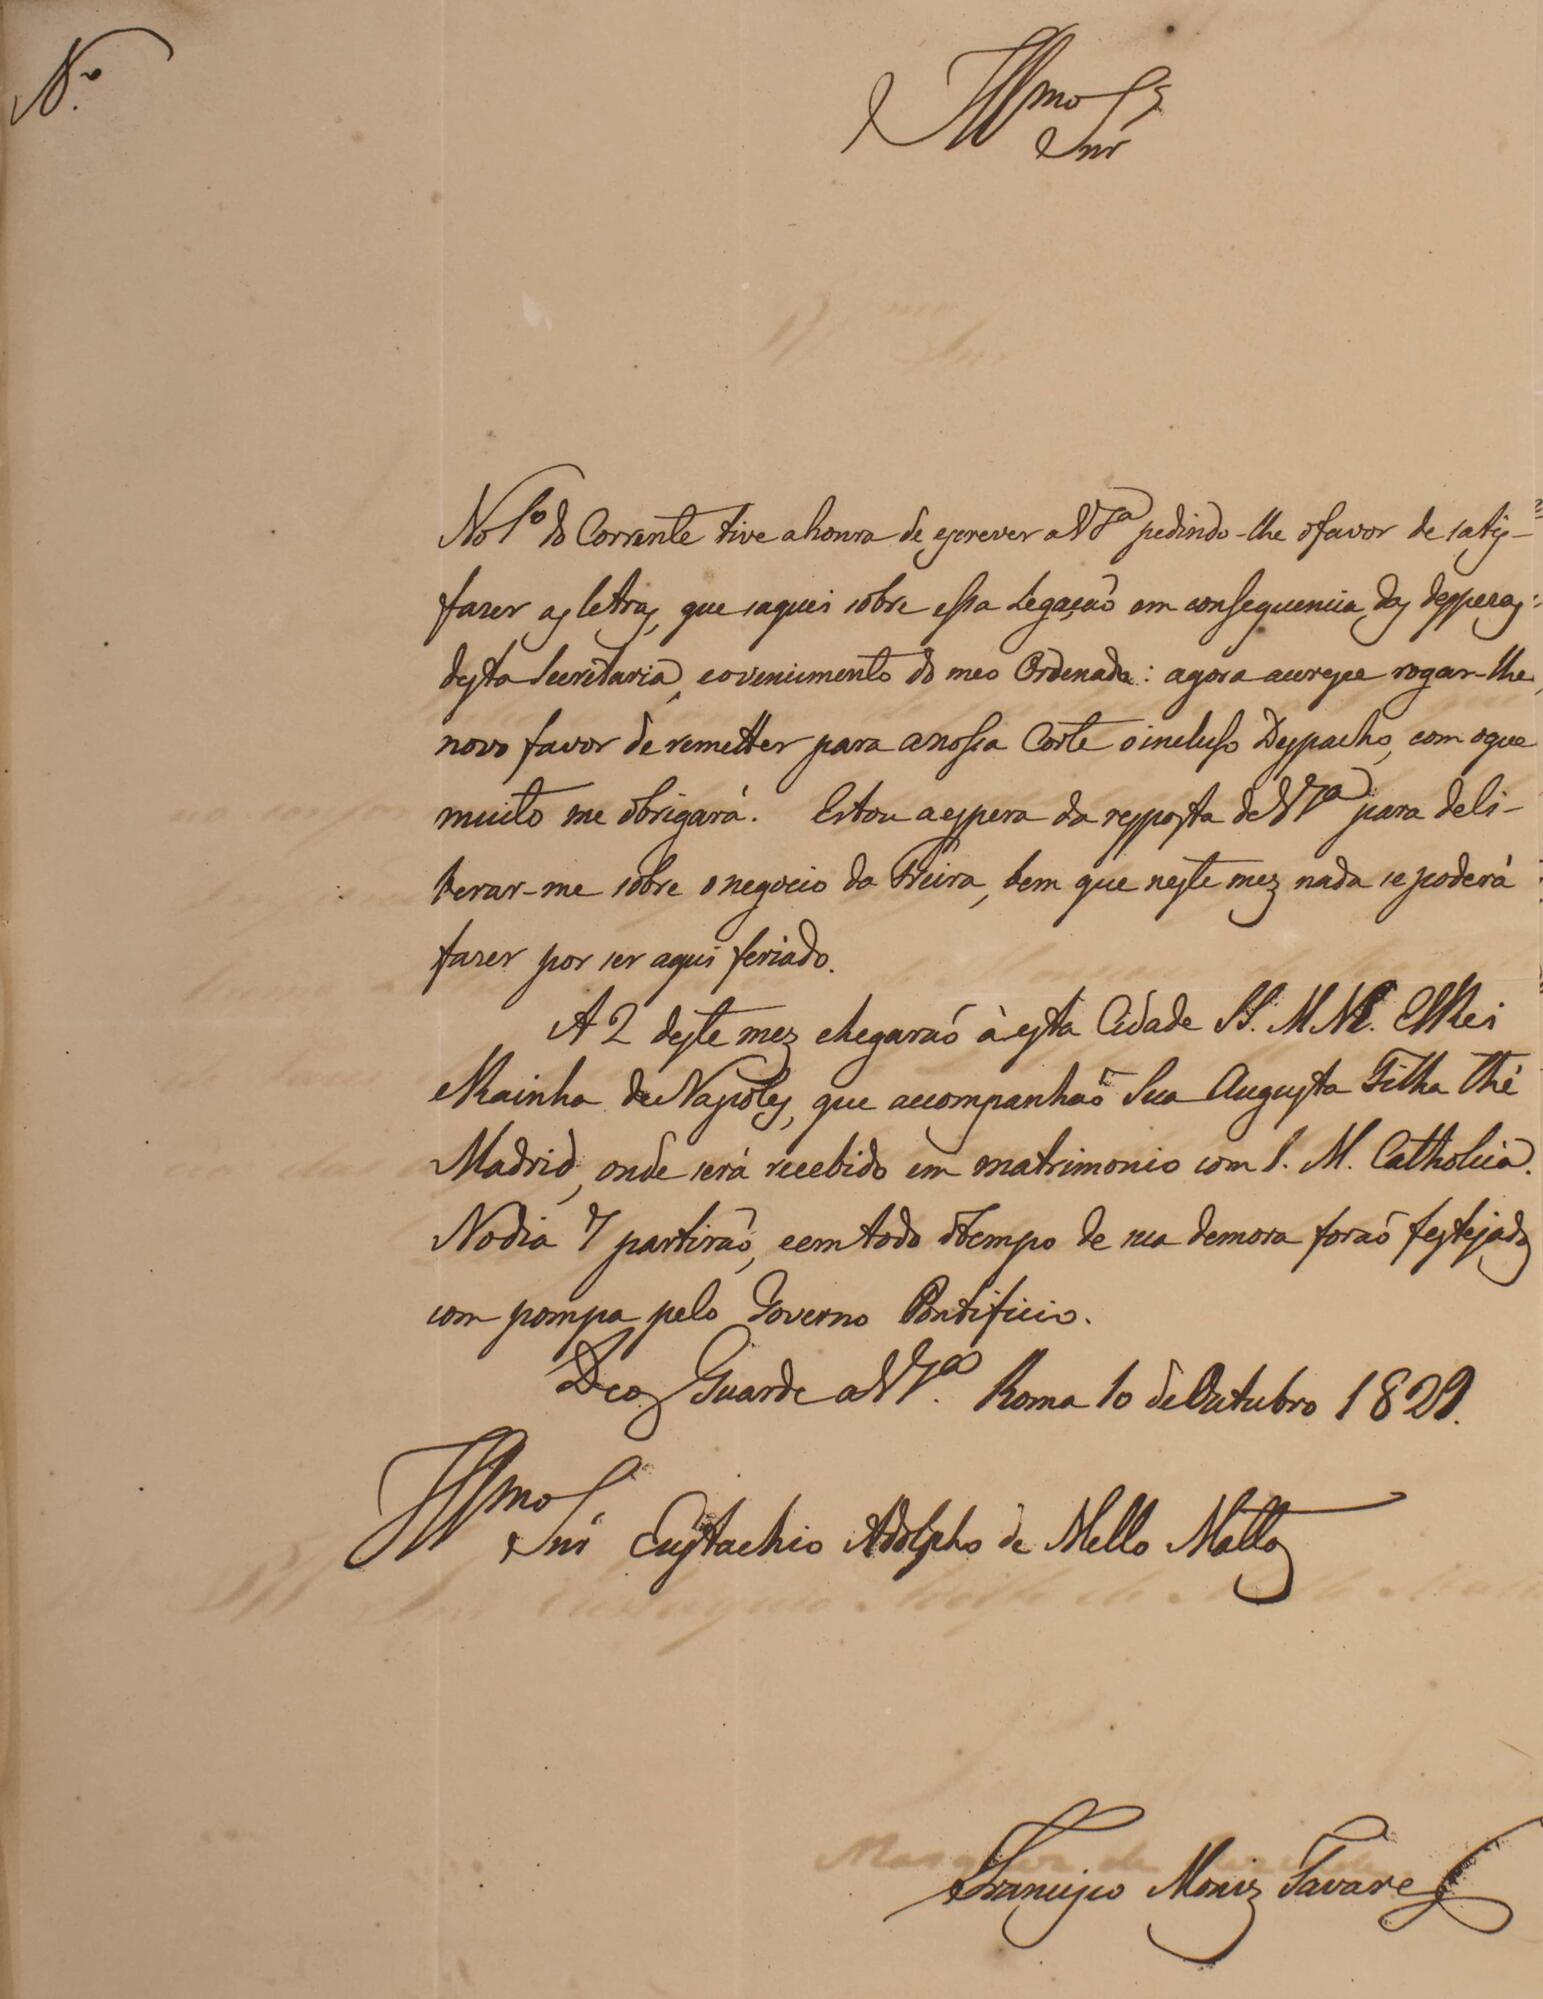 N.º
Illmo Sr
Snr
No 1º do Corrente tive a honra de escrever a V Sª pedindo-lhe o favor de satis-
fazer as letras, que saquei sobre essa Legação em consequencia das desperas
desta Secretaria, e o vencimento do meo Ordenado: agora accresce rogar-lhe
novo favor de remetter para a nossa Corte o incluso Despacho, com o que
muito me obrigará. Estou a espera da resposta de V Sª para deli-
berar-me sobre o negocio da Freira, bem que neste mez nada se poderá
fazer por ser aqui feriado.
A 2 deste mez chegarão à esta Cidade SS. MM. ElRei
e Rainha de Napoles, que accompanhão Sua Augusta Filha thé
Madrid, onde será recebido em matrimonio com S. M. Catholica.
No dia 7 partirão, e em todo o tempo de sua demora forão festejados
com pompa pelo Governo Pontificio.
Deos Guarde a V Sª. Roma 10 de Outubro 1829.
Illmo Snr Eustachio Adolpho de Mello Mattos
Francisco Moniz Tavares